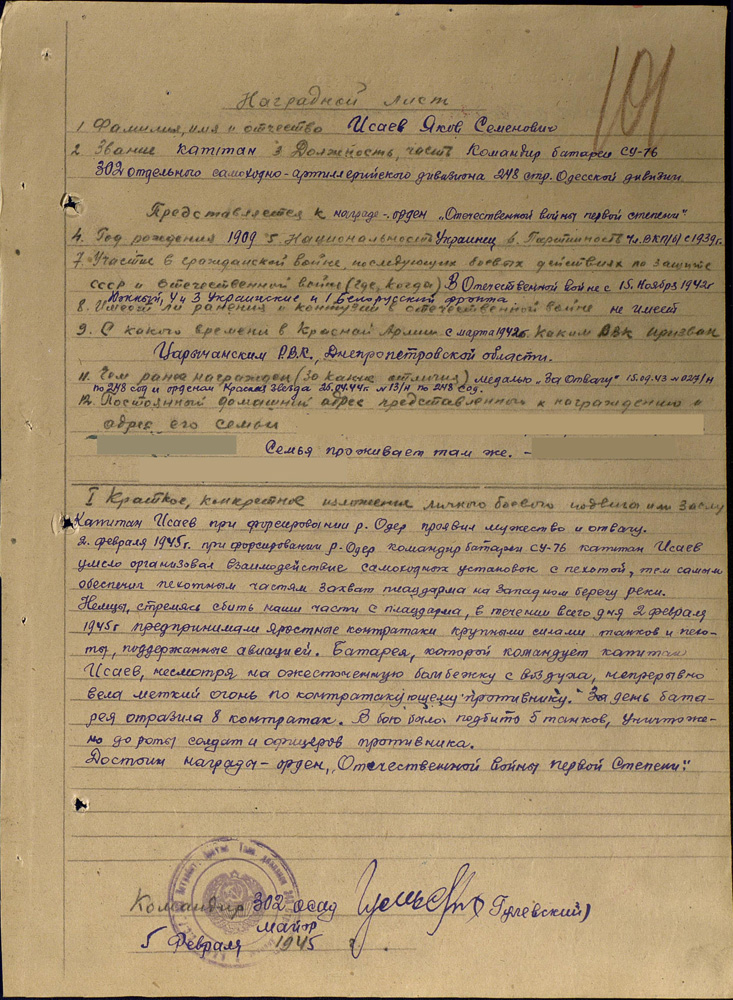 101
Наградной лист
1 Фамилия, имя и отчество Исаев Яков Семенович
2 Звание капитан 3 Должность, часть Командир батареи СУ-76
302 отдельного самоходно-артиллерийского дивизиона 248 стр. Одесской дивизии
Представляется к награде-орден „Отечественной войны первой степени"
4. Год рождения 1909 5. Национальность Украинец 6. Партийность Чл. ВКП/б/ с 1939г.
7. Участие в гражданской войне, последующих боевых действиях по защите
СССР и отечественной войне (где, когда) В Отечественной войне с 15. Ноября 1942г
Южный, 4 и 3 Украинские и 1 Белорусский фронта
8. Имеет ли ранения и контузии в отечественной войне не имеет
9. С какого времени в Красной Армии с марта 1942г. каким РВК призван
Царычанским Р.В.К., Днепропетровской области.
11. Чем ранее награжден (за какие отличия) медалью „За Отвагу" 15.09.43 №027/н
по 248 сд и орденом Красная Звезда 25.04.44г. №13/н по 248 сд.
12. Постоянный домашний адрес представленного к награждению и
адрес его семьи
Семья проживает там же. -
I Краткое, конкретное изложение личного боевого подвига или заслу
Капитан Исаев при форсировании р. Одер проявил мужество и отвагу.
2. февраля 1945г. при форсировании р. Одер командир батареи СУ-76 капитан Исаев
умело организовал взаимодействие самоходных установок с пехотой, тем самым
обеспечил пехотным частям захват плацдарма на западном берегу реки.
Немцы, стремясь сбить наши части с плацдарма, в течении всего дня 2 февраля
1945г предпринимали яростные контратаки крупными силами танков и пехо-
ты, поддержанные авиацией. Батарея, которой командует капитан
Исаев, несмотря на ожесточенную бомбежку с воздуха, непрерывно
вела меткий огонь по контратакующему противнику. За день бата-
рея отразила 8 контратак. В бою было подбито 5 танков, уничтоже-
но до роты солдат и офицеров противника.
Достоин награды - орден „Отечественной войны первой степени".
Командир 302 осад (Гулевский)
майор
5 Февраля 1945 г.